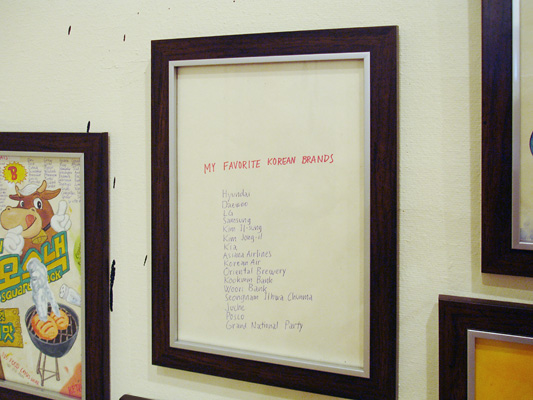 MY FAVORITE KOREAN BRANDS
Hyundai
Daewoo
LG
Samsung
Kim Il-Sung
Kim Jong-il
Kia
Asiana Airlines
Korean Air
Oriental Brewery
Kookmin Bank
Woori Bank
Seongnam Ilhwa Chunma
Juche
Posco
Grand National Party
B
SQUARE